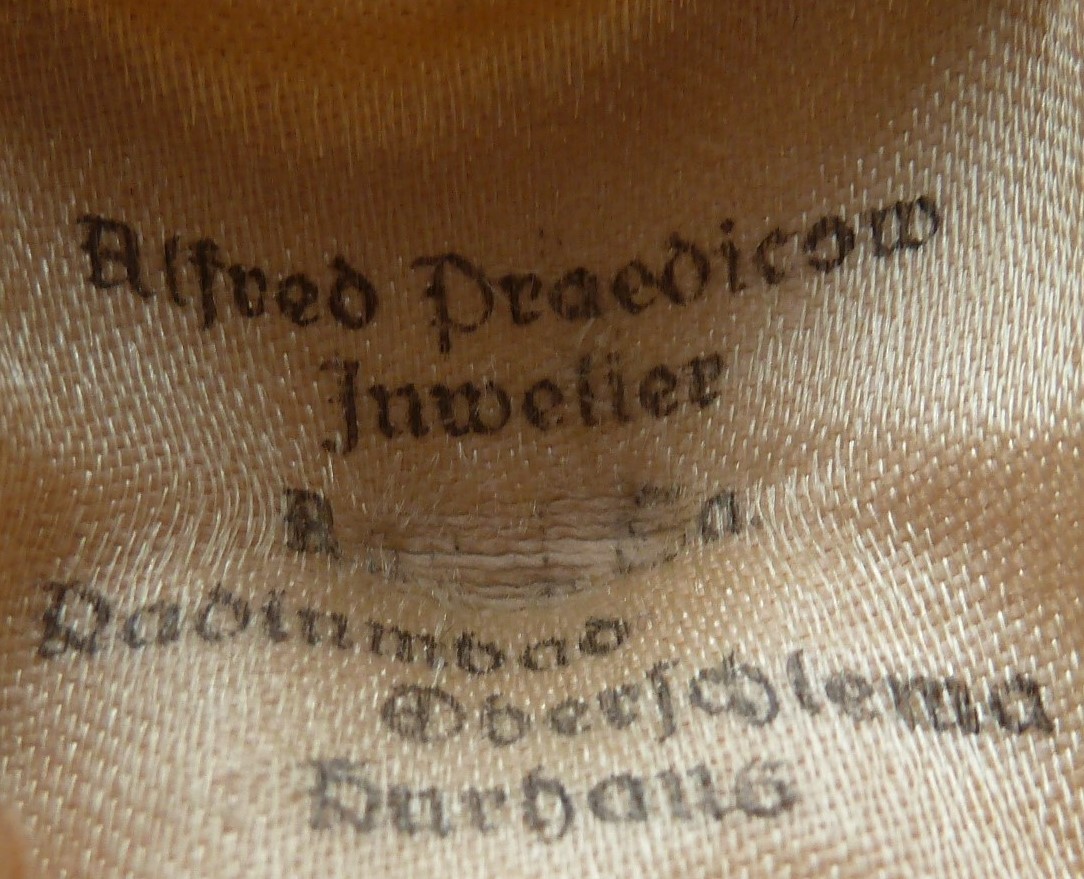 Alfred Praedicow
Juwelier
Radiumbad
Oberschlema
Kurhaus